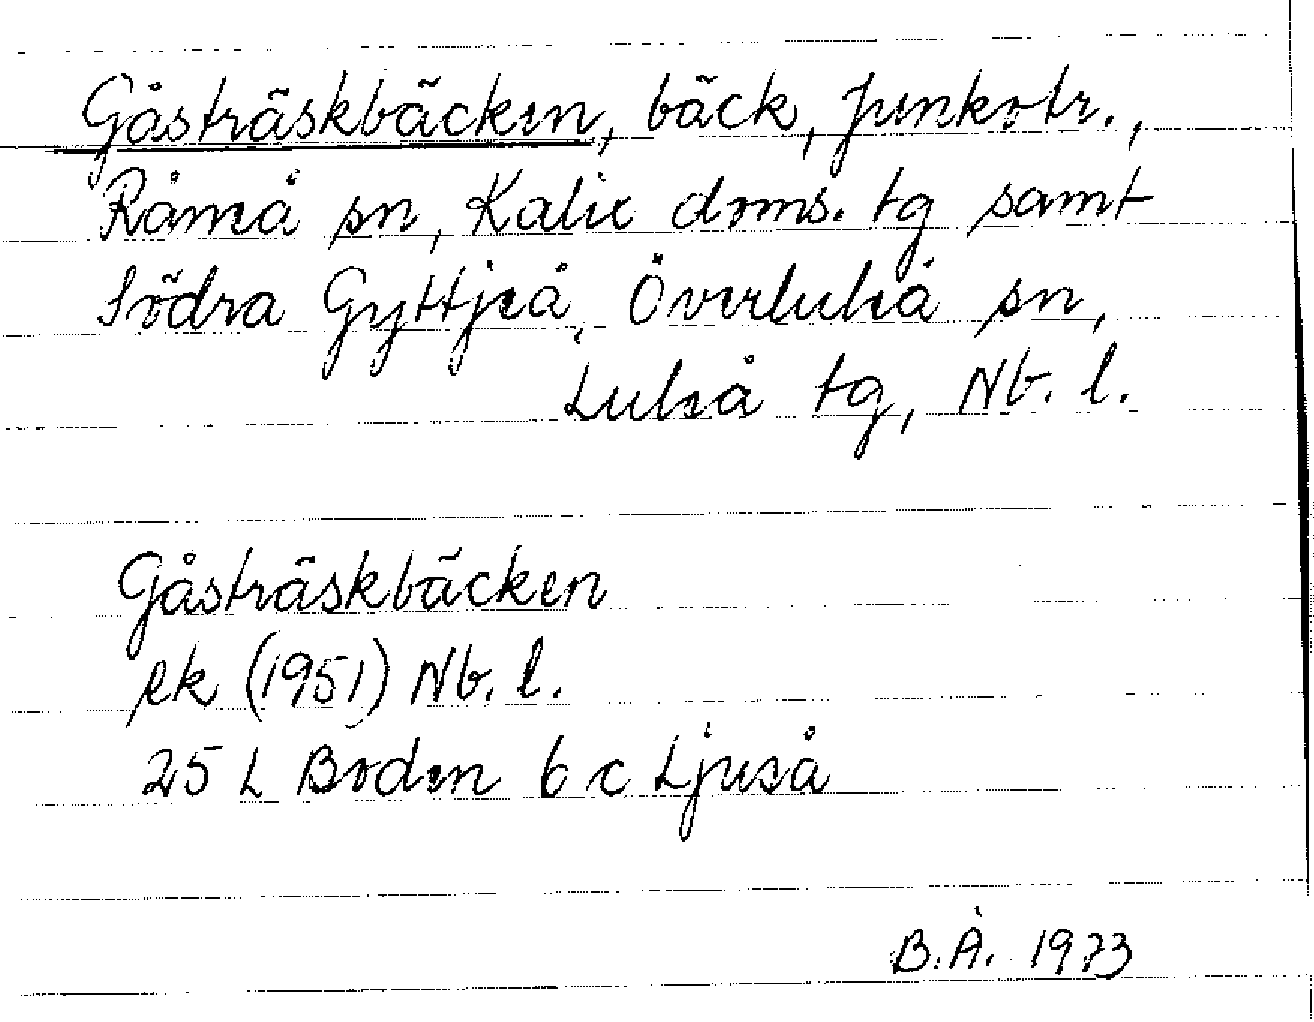 Gåsträskbäcken, bäck, punkotr.,
Råneå sn, Kalix doms. tg samt
Södra Gyttjeå, Överluleå sn,
Luleå tg, Nb. l.
Gåsträskbäcken
ek (1951) Nb. l.
25 L Boden 6 c Ljuså
B.Å. 1973